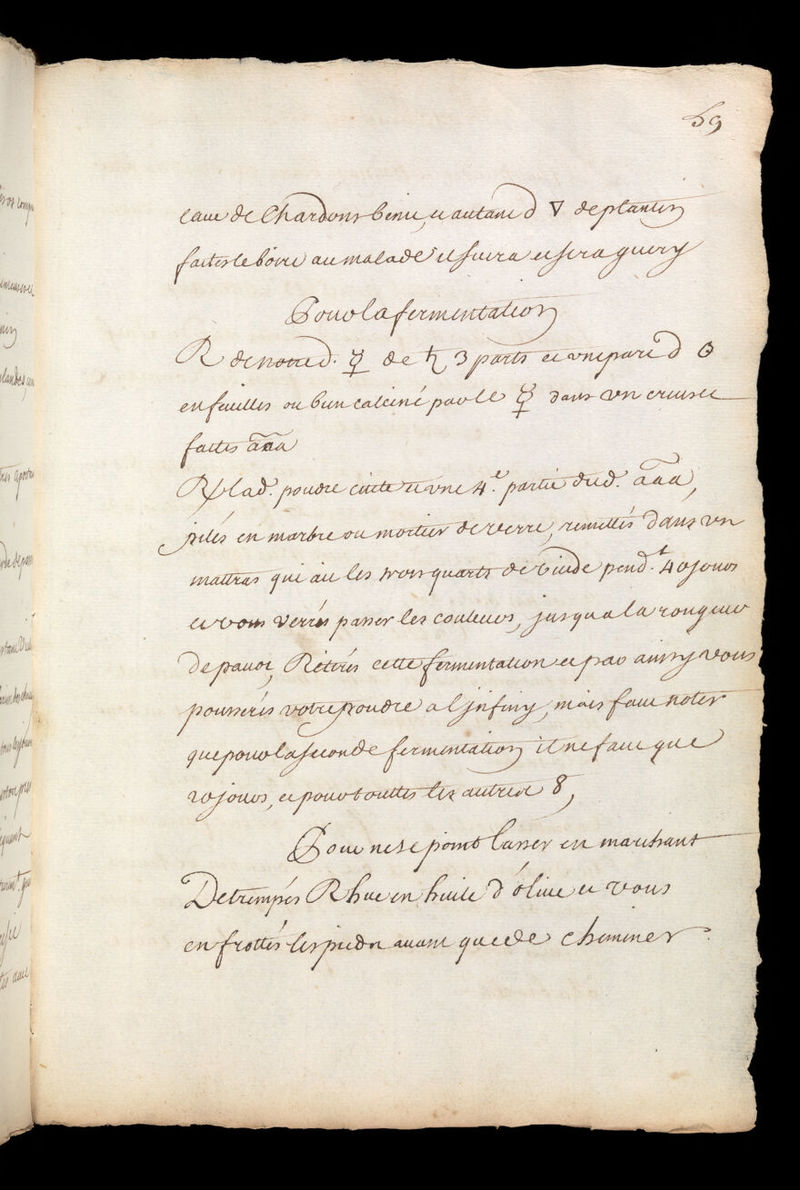 59
eaue de Chardons benit, et autant d ▽ de plantin
faites le boire au malade il suera et sera guery
Pour la fermentation
R de notre d. ☿ de ♄ 3 parts et une part d ☉
en feuilles ou bien calciné par le ☿ dans un creuset
faites aaa
R lad. poudre cuitte et une 4.e partie dud. aaa,
pilés en marbre ou mortier de verre, remettés dans un
mattras qui ait les trois quarts de vuide pend.t 40 jours
et vous verrés passer les couleurs, jusqua la rougeur
de pavot, Réiterés cette fermentation et par ainsy vous
pousserés votre poudre a l'jnfiny, mais faut noter
que pour la seconde fermentation il ne faut que
20 jours, et pour touttes les autres 8,
Pour ne se point lasser en marchant
Detrempés Rhue en huile d'olive et vous
en frottés les pieds avant que de cheminer.